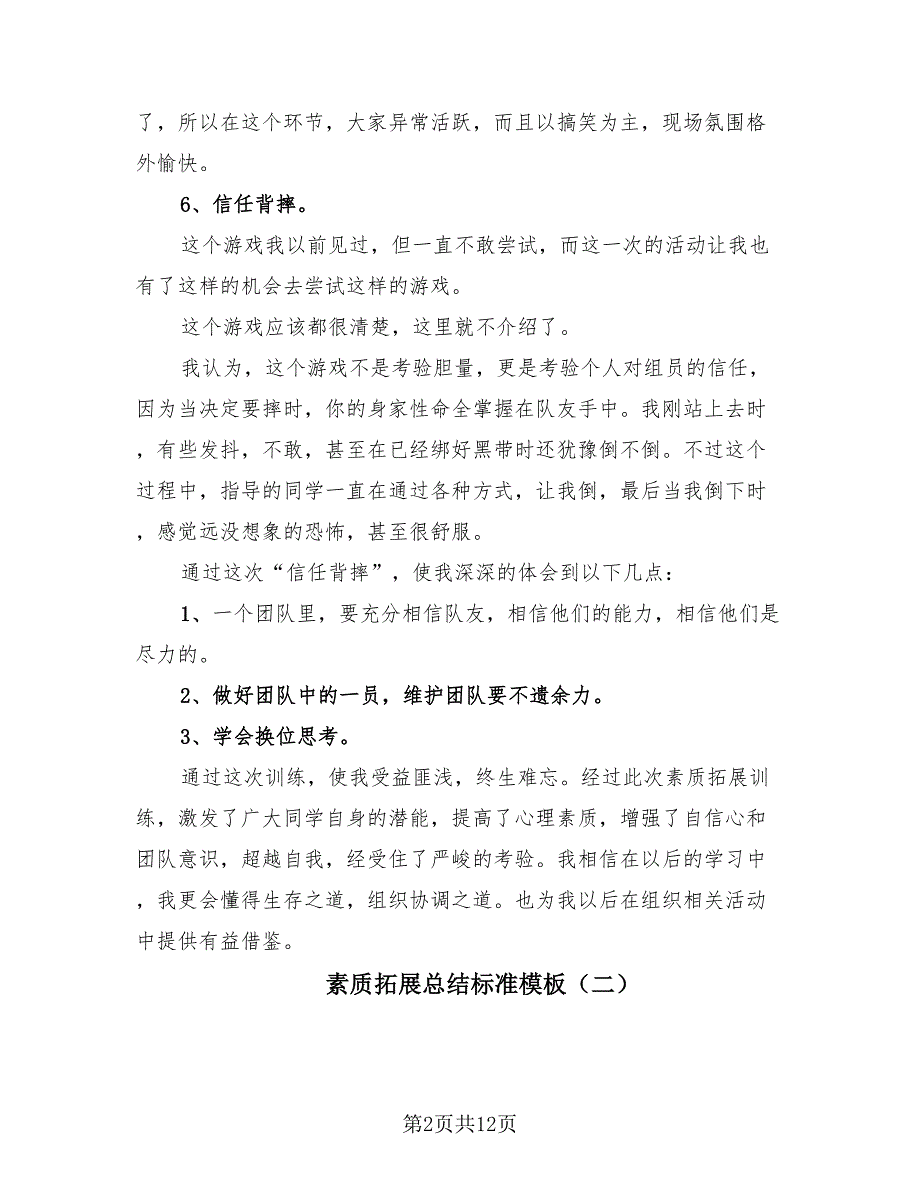 了，所以在这个环节，大家异常活跃，而且以搞笑为主，现场氛围格
外愉快。
6、信任背摔。
这个游戏我以前见过，但一直不敢尝试，而这一次的活动让我也
有了这样的机会去尝试这样的游戏。
这个游戏应该都很清楚，这里就不介绍了。
我认为，这个游戏不是考验胆量，更是考验个人对组员的信任，
因为当决定要摔时，你的身家性命全掌握在队友手中。我刚站上去时
，有些发抖，不敢，甚至在已经绑好黑带时还犹豫倒不倒。不过这个
过程中，指导的同学一直在通过各种方式，让我倒，最后当我倒下时
，感觉远没想象的恐怖，甚至很舒服。
通过这次“信任背摔”，使我深深的体会到以下几点：
1、一个团队里，要充分相信队友，相信他们的能力，相信他们是
尽力的。
2、做好团队中的一员，维护团队要不遗余力。
3、学会换位思考。
通过这次训练，使我受益匪浅，终生难忘。经过此次素质拓展训
练，激发了广大同学自身的潜能，提高了心理素质，增强了自信心和
团队意识，超越自我，经受住了严峻的考验。我相信在以后的学习中
，我更会懂得生存之道，组织协调之道。也为我以后在组织相关活动
中提供有益借鉴。
素质拓展总结标准模板（二）
第2页共12页